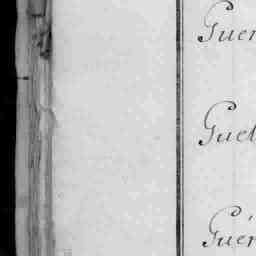 Guer
Guel
Guér